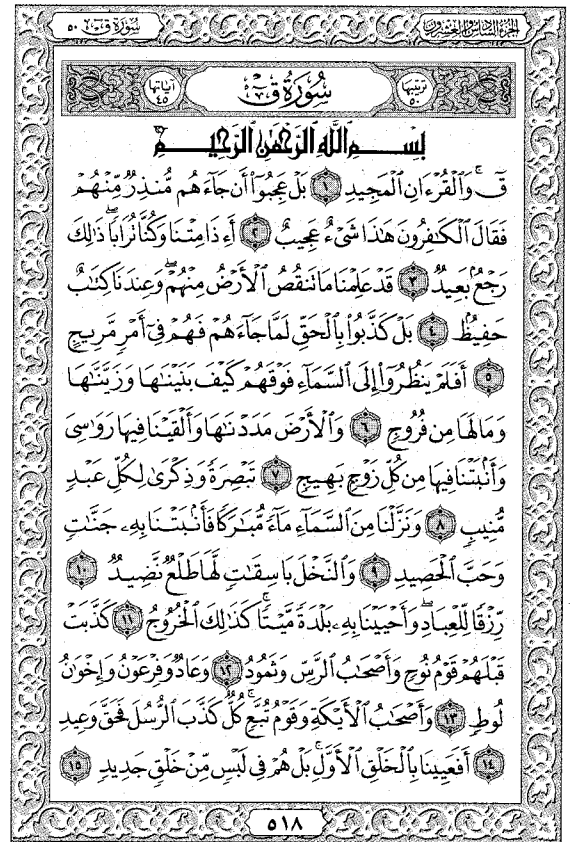 سُورَةُ قٓ ٥٠
الجزء السادس والعشرون
ترتيبها ٥٠
سُورَةُ قٓ
آياتها ٤٥
بِسْمِ ٱللَّهِ ٱلرَّحْمَٰنِ ٱلرَّحِيمِ
قٓ ۚ وَٱلْقُرْءَانِ ٱلْمَجِيدِ ١ بَلْ عَجِبُوٓا۟ أَن جَآءَهُم مُّنذِرٌ مِّنْهُمْ
فَقَالَ ٱلْكَٰفِرُونَ هَٰذَا شَىْءٌ عَجِيبٌ ٢ أَءِذَا مِتْنَا وَكُنَّا تُرَابًا ۖ ذَٰلِكَ
رَجْعٌۢ بَعِيدٌ ٣ قَدْ عَلِمْنَا مَا تَنقُصُ ٱلْأَرْضُ مِنْهُمْ ۖ وَعِندَنَا كِتَٰبٌ
حَفِيظٌۢ ٤ بَلْ كَذَّبُوا۟ بِٱلْحَقِّ لَمَّا جَآءَهُمْ فَهُمْ فِىٓ أَمْرٍ مَّرِيجٍ
٥ أَفَلَمْ يَنظُرُوٓا۟ إِلَى ٱلسَّمَآءِ فَوْقَهُمْ كَيْفَ بَنَيْنَٰهَا وَزَيَّنَّٰهَا
وَمَا لَهَا مِن فُرُوجٍ ٦ وَٱلْأَرْضَ مَدَدْنَٰهَا وَأَلْقَيْنَا فِيهَا رَوَٰسِىَ
وَأَنۢبَتْنَا فِيهَا مِن كُلِّ زَوْجٍۭ بَهِيجٍ ٧ تَبْصِرَةً وَذِكْرَىٰ لِكُلِّ عَبْدٍ
مُّنِيبٍ ٨ وَنَزَّلْنَا مِنَ ٱلسَّمَآءِ مَآءً مُّبَٰرَكًا فَأَنۢبَتْنَا بِهِۦ جَنَّٰتٍ
وَحَبَّ ٱلْحَصِيدِ ٩ وَٱلنَّخْلَ بَاسِقَٰتٍ لَّهَا طَلْعٌ نَّضِيدٌ ١٠
رِّزْقًا لِّلْعِبَادِ ۖ وَأَحْيَيْنَا بِهِۦ بَلْدَةً مَّيْتًا ۚ كَذَٰلِكَ ٱلْخُرُوجُ ١١ كَذَّبَتْ
قَبْلَهُمْ قَوْمُ نُوحٍ وَأَصْحَٰبُ ٱلرَّسِّ وَثَمُودُ ١٢ وَعَادٌ وَفِرْعَوْنُ وَإِخْوَٰنُ
لُوطٍ ١٣ وَأَصْحَٰبُ ٱلْأَيْكَةِ وَقَوْمُ تُبَّعٍ ۚ كُلٌّ كَذَّبَ ٱلرُّسُلَ فَحَقَّ وَعِيدِ
١٤ أَفَعَيِينَا بِٱلْخَلْقِ ٱلْأَوَّلِ ۚ بَلْ هُمْ فِى لَبْسٍ مِّنْ خَلْقٍ جَدِيدٍ ١٥
٥١٨